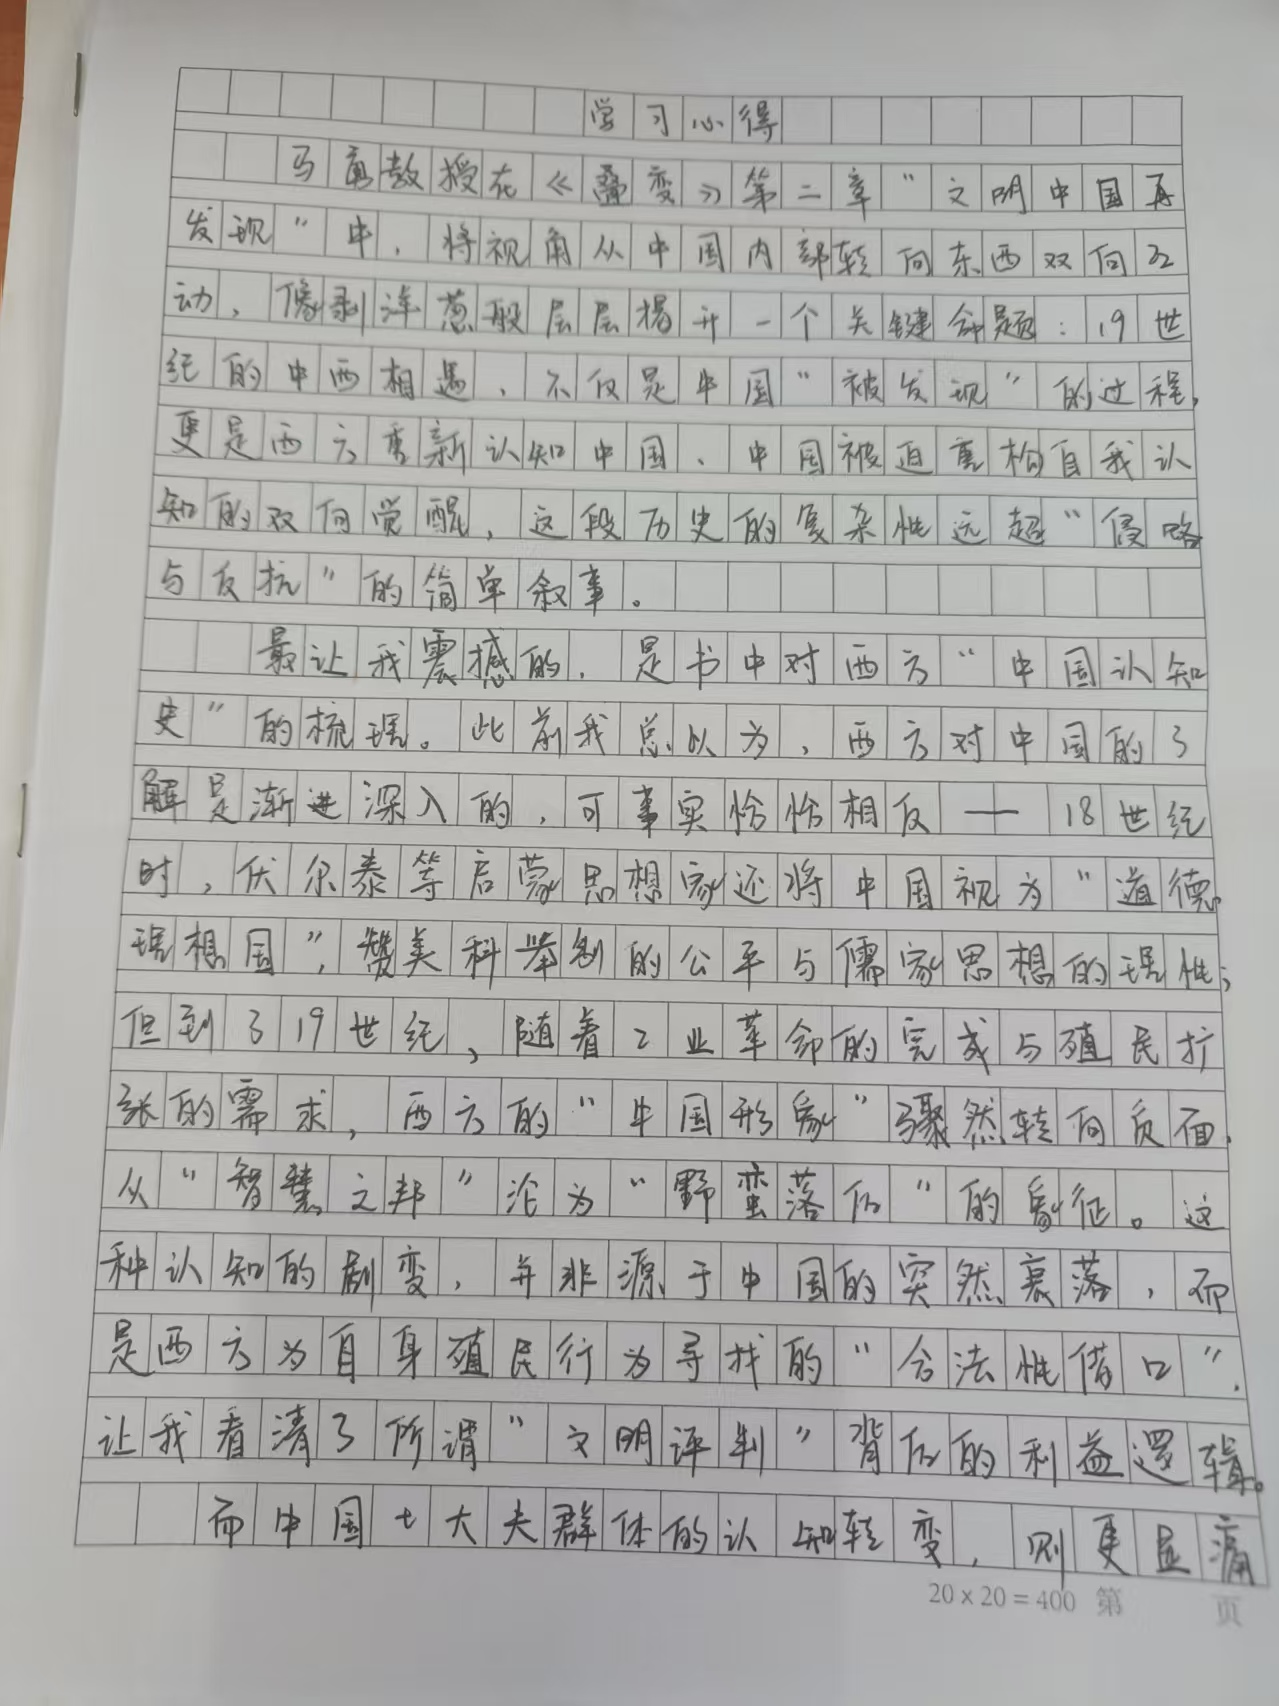 学习心得
马勇教授在《叠变》第二章“文明中国再
发现”中，将视角从中国内部转向东西双向互
动，像剥洋葱般层层揭开一个关键命题：19世
纪的中西相遇，不仅是中国“被发现”的过程，
更是西方重新认知中国、中国被迫重构自我认
知的双向觉醒，这段历史的复杂性远超“侵略
与反抗”的简单叙事。
最让我震撼的，是书中对西方“中国认知
史”的梳理。此前我总以为，西方对中国的了
解是渐进深入的，可事实恰恰相反——18世纪
时，伏尔泰等启蒙思想家还将中国视为“道德
理想国”，赞美科举制的公平与儒家思想的理性；
但到了19世纪，随着工业革命的完成与殖民扩
张的需求，西方的“中国形象”骤然转向负面，
从“智慧之邦”沦为“野蛮落后”的象征。这
种认知的剧变，并非源于中国的突然衰落，而
是西方为自身殖民行为寻找的“合法性借口”，
让我看清了所谓“文明评判”背后的利益逻辑。
而中国士大夫群体的认知转变，则更显痛
20×20=400 第 页